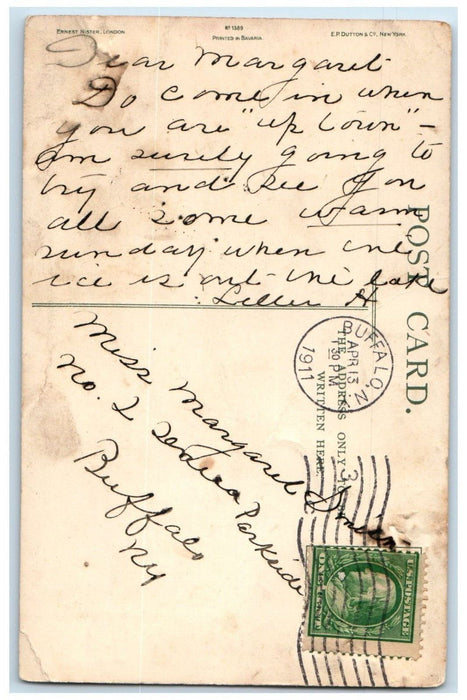 ERNEST NISTER, LONDON
No 1389
PRINTED IN BAVARIA
E.P. DUTTON & CO, NEW YORK.
Dear Margaret
Do come in when
you are "up town" -
am surely going to
try and see you
all some warm
sunday when the
ice is out the lake
H
POST CARD.
THE ADDRESS ONLY TO BE
WRITTEN HERE.
BUFFALO, N.
APR 13
30 PM
1911
3
Miss Margaret
No. 2 Parkside
Buffalo
NY
U.S. POSTAGE
ONE CENT